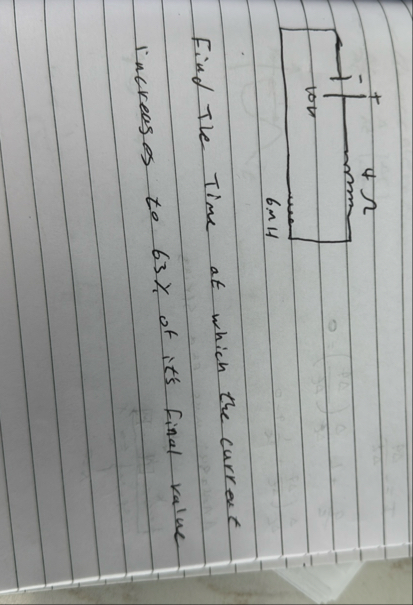 - +
4 Ω
10V
6mH
Find The Time at which the current
increases to 63% of it's final value